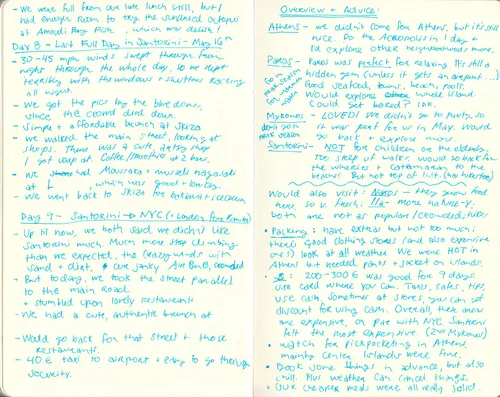 - We were full from our late lunch still, but I
had enough room to try the sundried octopus
at Amoudi Bay Fish, which was delish!
Day 8 - Last Full Day in Santorini - May 16
- 30-45 mph winds swept through from
night through the whole day, so we slept
terribly with the windows + shutters
all night.
- We got the pics by the blue domes,
since the crowd died down.
- Simple + affordable brunch at Skiza
- We walked the main street, looking at
shops. There was a cute, artsy shop
I got soap at. Coffee/smoothies at 2 bars.
- We had Moussaka + mussels saganaki
at , which was good + low-key.
- We went back to Skiza for baklava + icecream
Day 9 - Santorini → NYC (+ London for )
- Up til now, we both said we didn't like
Santorini much. Much more step climbing
than we expected, the crazy winds with
sand + dirt, + our janky Air BnB, crowded
- But today, we took the street parallel
to the main road
+ stumbled upon lovely restaurants.
- We had a cute, authentic brunch at
- Would go back for that street + those
restaurants.
- 40€ taxi to airport + easy to go through
security.
Overview + Advice:
Athens - we didn't come for Athens, but it's still
nice. Do the Acropolis in 1 day +
I'd explore other neighborhoods more.
Paros - Paros was perfect for relaxing. It's still a
hidden gem (unless it gets an airport...)
Good seafood, towns, beach, pools.
Would explore whole island.
Could get bored? idk.
Go in peak season for warm water
Mykonos - LOVED! We didn't go to party, so
it was perf for us in May. Would
go back + explore more.
Santorini - NOT for children or the elderly.
Too steep of water. Would go back for
the wineries + catamaran to the
beaches. But not top of list.
Would also visit: Naxos - they grow food
here, so v. fresh. more nature-y.
both are not as popular/crowded
• Packing: have extras but not too much;
there's good clothing stores (and also expensive
ones). look at all weather. We were HOT in
Athens but needed pants + jacket on islands.
• $: 200-300 € was good for 9 days.
use card where you can. Taxis, cafes, tips,
use cash. Sometimes at stores, you can get
discount for using cash. Overall, these areas
are expensive, on par with NYC. Santorini
felt the most expensive (2nd Mykonos)
• Watch for pickpocketing in Athens,
mainly center. Islands were fine.
• Book some things in advance, but also
chill. Plus weather can cancel things.
• Our cheaper meals were all really solid.